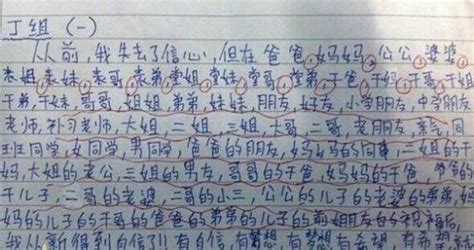 丁组(一)
从前,我失去了信心,但在爸爸,妈妈,公公,婆婆
表姐,表妹,表哥,表弟,堂姐,堂妹,堂哥,堂弟,干爸,干妈,干哥,干姐
干弟,干妹,哥哥,姐姐,弟弟,妹妹,朋友,好友,小学朋友,中学朋友
老师,补习老师,大姐,二姐,三姐,大哥,二哥,老朋友,亲气,同
班同学,女同学,男同学,爸爸的朋友,妈妈的同事,三姐的干
妈,大姐的老公,三姐的男友,哥哥的干爸的干妈,爷爷的
干儿子,二哥的老婆,二哥的小三,公公的儿子的老婆的弟弟,
妈妈的儿子的干哥的爸爸的弟弟的儿子的前姐夫女的祝福后,
我从新得到自信了!!有自信,有梦想